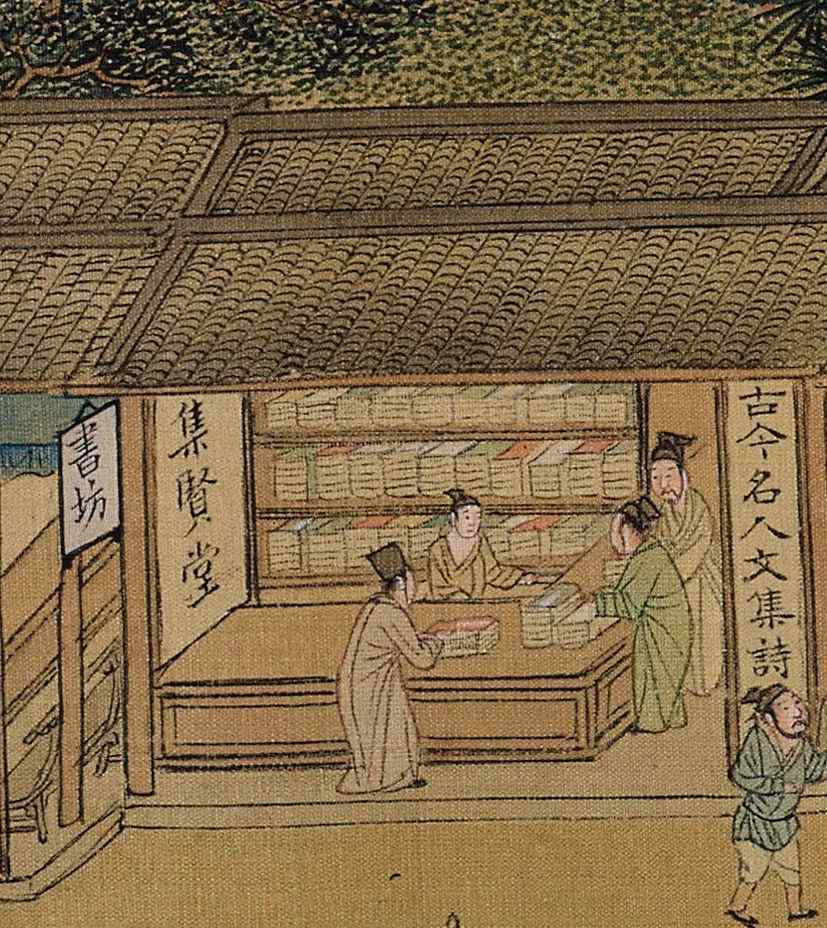 古今名人文集詩
集賢堂
書坊